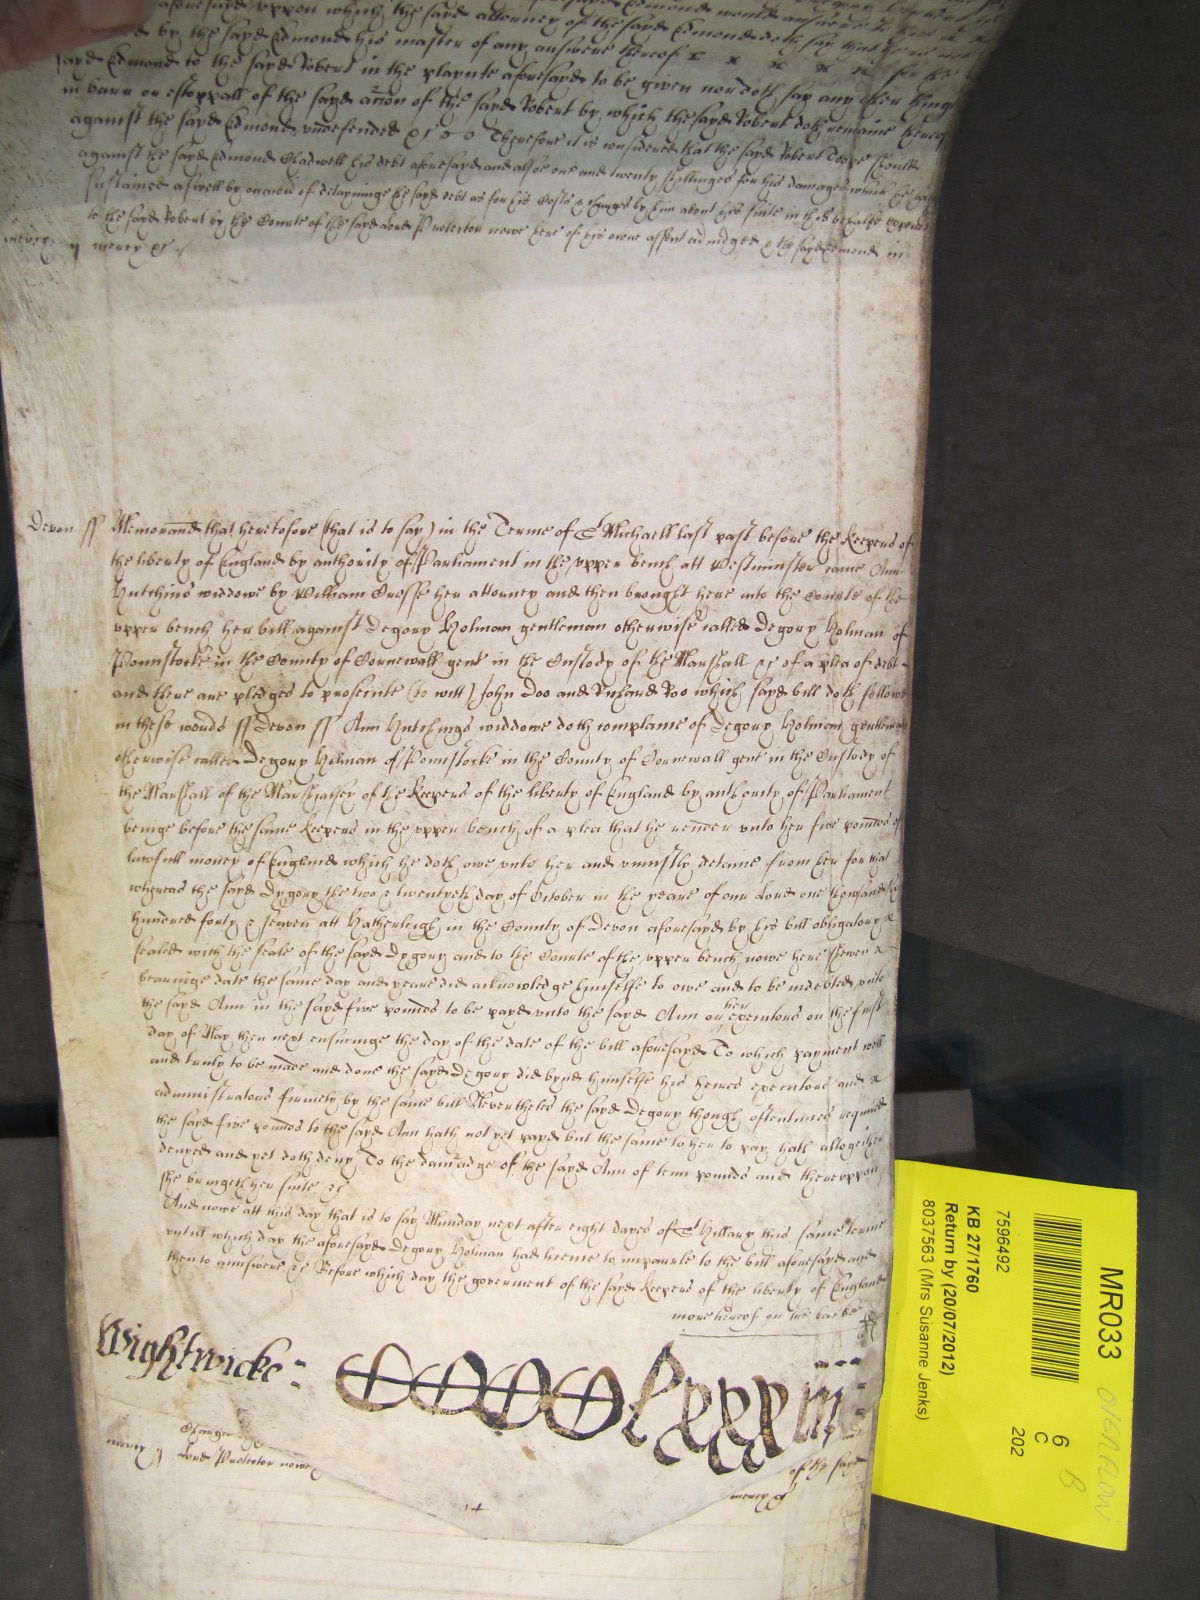 aforesayd uppon which the sayd attorney of the sayd Edmond doth say that he is not
by the sayd Edmond his master of any answere thereof x x x x x for the
sayd Edmond to the sayd Robert in the playnte aforesayd to be given nor doth say any other thing
in barr or estoppall of the sayd accon of the sayd Robert by which the sayd Robert doth remaine
against the sayd Edmond undefended &c Therefore it is considered that the sayd Robert
against the sayd Edmond Chadwell his debt aforesayd and alsoe one and twenty shillinges for his damages which he
sustained aswell by occasion of detayninge the sayd debt as for his Costs & charges by him about his suite in this behalfe
to the sayd Robert by the Courte of the sayd Lord Protector nowe here of his owne assent adiudged & the sayd Edmond in
mercy mercy &c
Devon ss Memorand that heretofore (that is to say) in the Terme of St Michaell last past before the Keepers of
the liberty of England by authority of Parliament in the upper bench att Westminster came Ann
Hutchins widdowe by William Crosse her attorney and then brought here into the Courte of the
upper bench her bill against Degory Holman gentleman otherwise called Degory Holman of
Ponnstocke in the County of Cornewall gent in the Custody of the Marshall &c of a plea of debt
and there are pledges to prosecute (to witt) John Doo and Richard Roo which sayd bill doth followe
in these words ss Devon ss Ann Hutchings widdowe doth complaine of Degory Holman gentleman
otherwise called Degory Holman of Ponnstocke in the County of Cornewall gent in the Custody of
the Marshall of the Marshalsey of the Keepers of the liberty of England by authority of Parliament
beinge before the same keepers in the upper bench of a plea that he render unto her five pounds of
lawfull money of England which he doth owe unto her and uniustly detaine from her for that
whereas the sayd Dygory the two & twentyeth day of October in the yeare of our Lord one thousand six
hundred forty & seaven att Hatherleigh in the County of Devon aforesayd by his bill obligatory x
sealed with the seale of the sayd Dygory and to the Courte of the upper bench nowe here shewen x
bearinge date the same day and yeare did acknowledge himselfe to owe and to be indebted unto
the sayd Ann in the sayd five pounds to be payd unto the sayd Ann or her executors on the first
day of May then next ensueinge the day of the date of the bill aforesayd To which payment well
and truly to be made and done the sayd Degory did bynd himselfe his heires executors and x
administrators firmely by the same bill Nevertheles the sayd Degory though oftentimes required
the sayd five pounds to the sayd Ann hath not yet payd but the same to her to pay hath altogether
denyed and yet doth deny To the damadge of the sayd Ann of tenn pounds and thereuppon
she bringeth her suite &c
And nowe att this day that is to say Munday next after eight dayes of St Hillary this same terme
untill which day the aforesayd Degory Holman had licence to imparle to the bill aforesayd and
then to answere &c Before which day the goverment of the sayd Keepers of the liberty of England
more hereof on the backe
Wightwicke:
mercy
Charges
Lord Protector nowe
of the sayd
mercy
MR033
7596492
KB 27/1760
Return by (20/07/2012)
8037563 (Mrs Susanne Jenks)
6
C
202
OVERFLOW
B